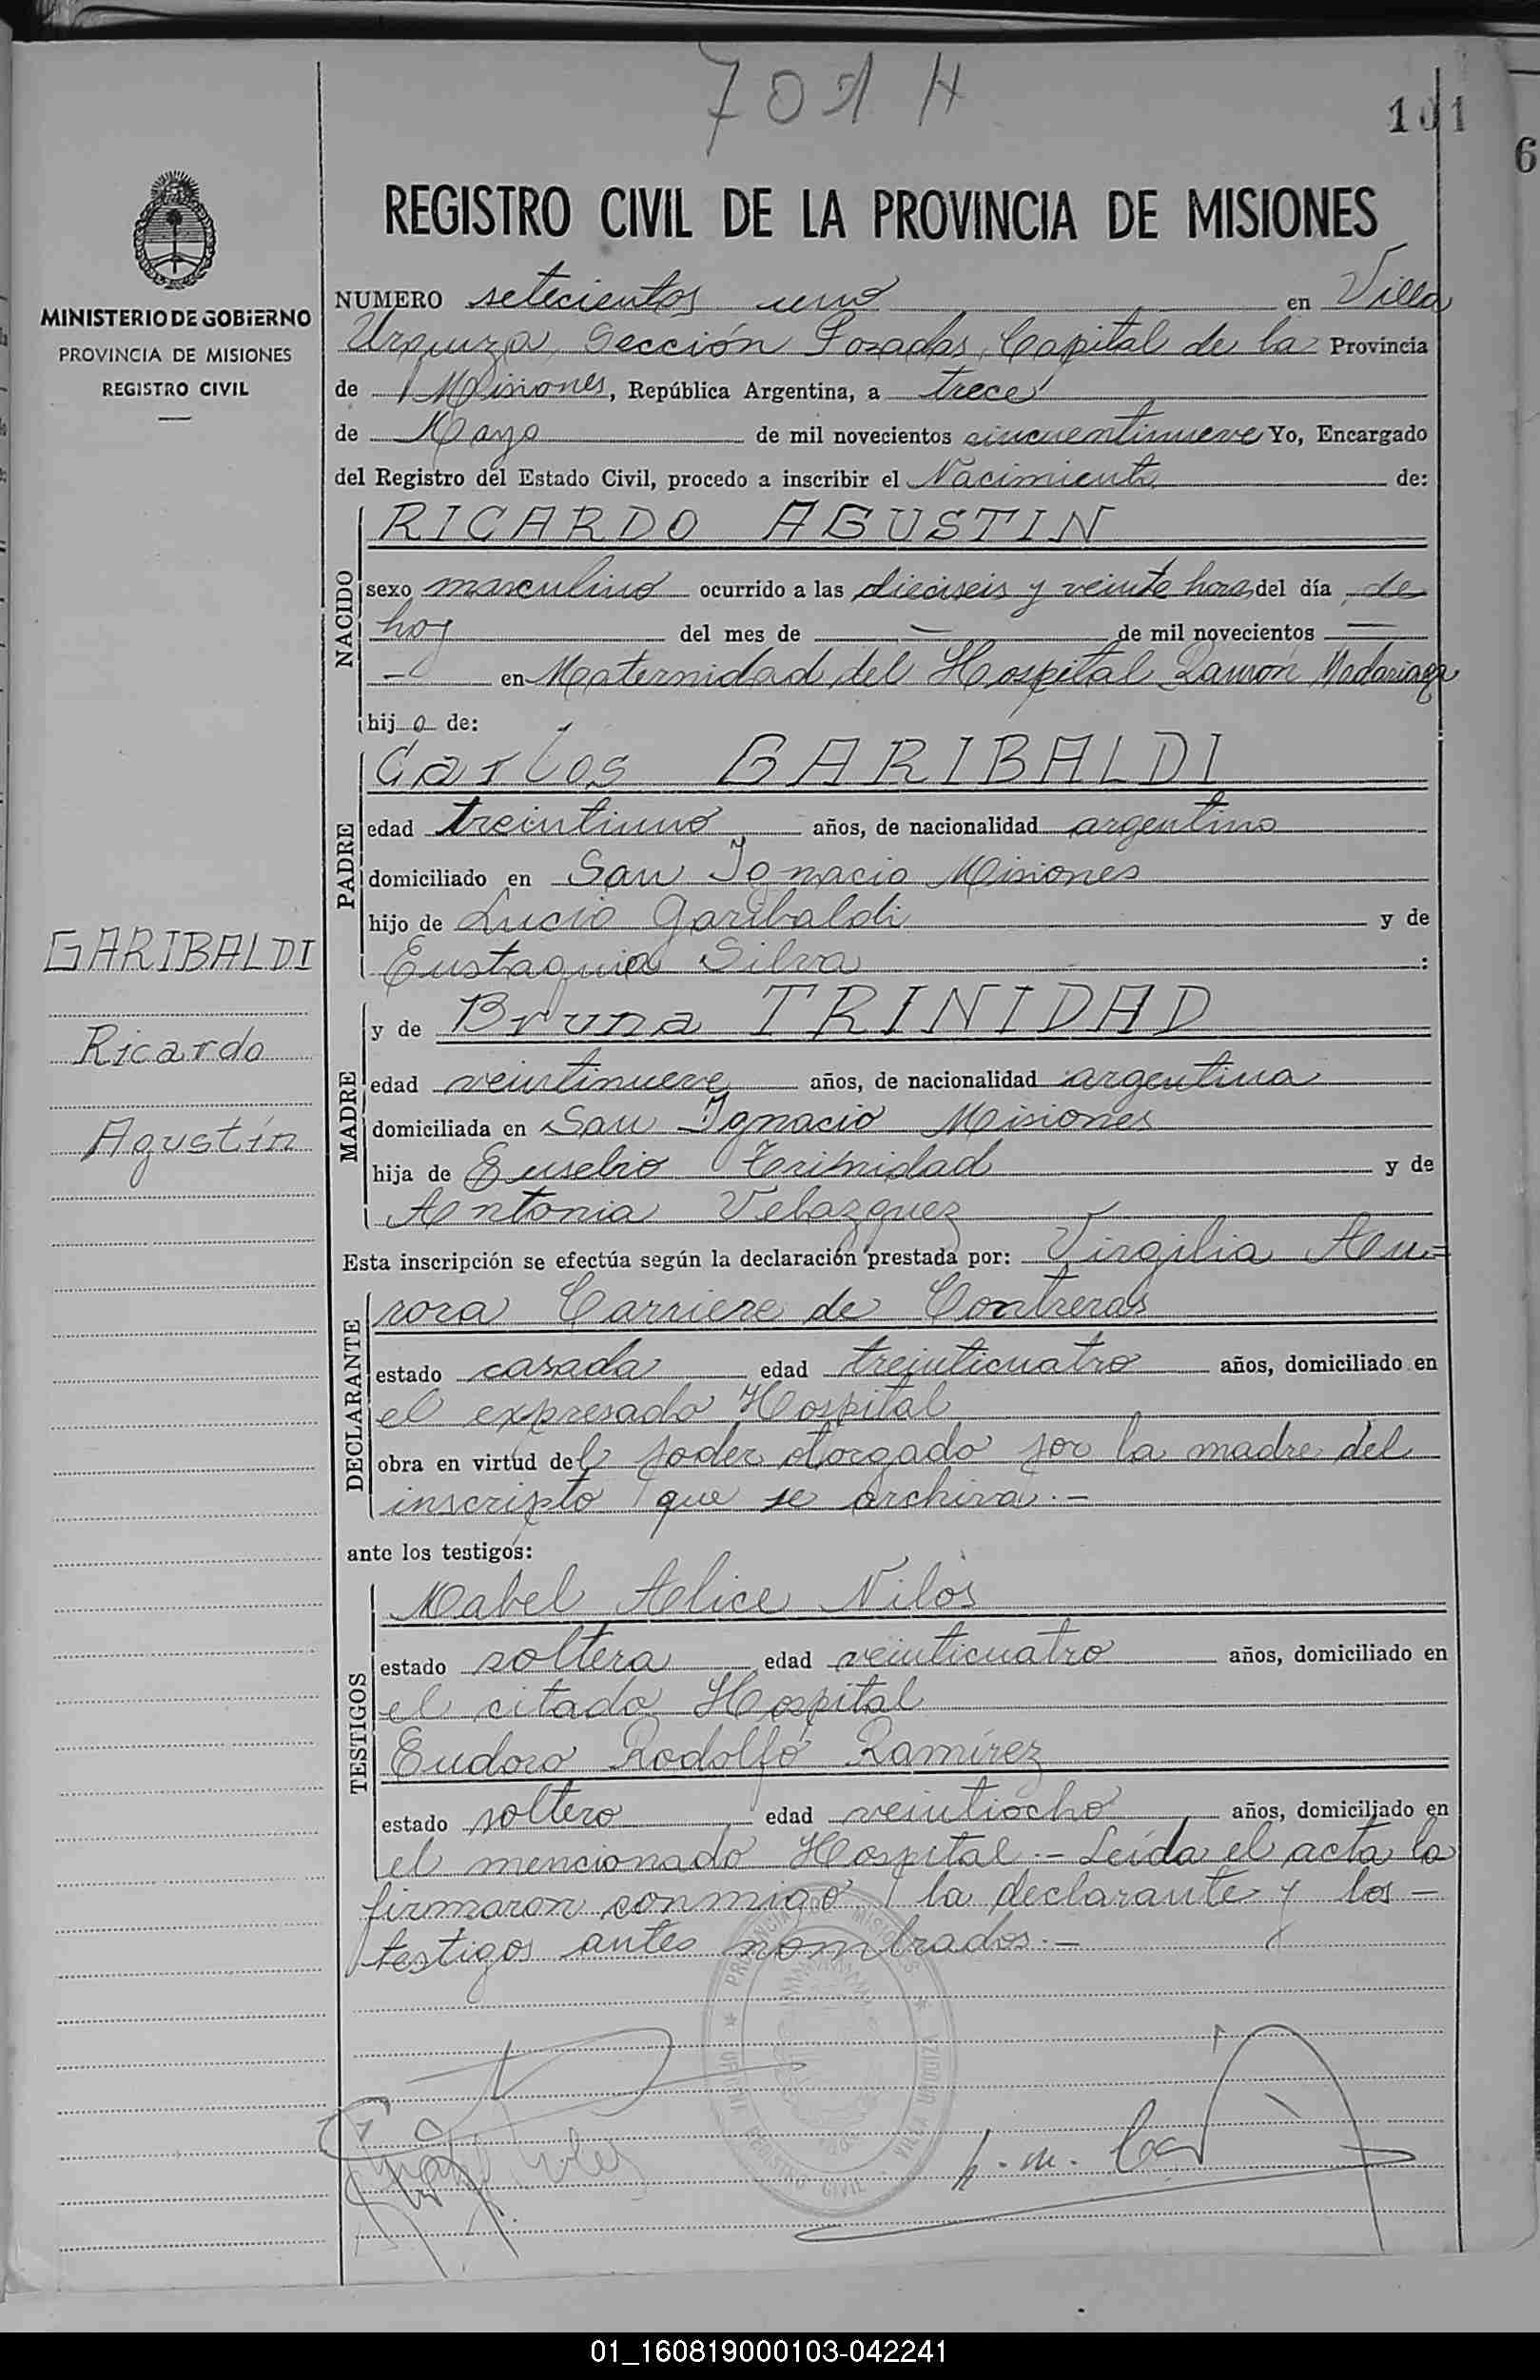 701 H
101
6
REGISTRO CIVIL DE LA PROVINCIA DE MISIONES
MINISTERIO DE GOBIERNO
PROVINCIA DE MISIONES
REGISTRO CIVIL
NUMERO setecientos uno en Villa
Urquiza, Sección Posadas, Capital de la Provincia
de Misiones, República Argentina, a trece
de Mayo de mil novecientos cincuentinueve Yo, Encargado
del Registro del Estado Civil, procedo a inscribir el Nacimiento de:
NACIDO
RICARDO AGUSTIN
sexo masculino ocurrido a las dieciseis y veinte horas del día de
hoy del mes de — de mil novecientos —
— en Maternidad del Hospital Ramón Madariaga
hijo de:
PADRE
Carlos GARIBALDI
edad treintiuno años, de nacionalidad argentino
domiciliado en San Ignacio Misiones
hijo de Lucio Garibaldi y de
Eustaquia Silva :
GARIBALDI
Ricardo
Agustín
MADRE
y de Bruna TRINIDAD
edad veintinueve años, de nacionalidad argentina
domiciliada en San Ignacio Misiones
hija de Eusebio Trinidad y de
Antonia Velazquez
Esta inscripción se efectúa según la declaración prestada por: Virgilia Au=
DECLARANTE
rora Carriere de Contreras
estado casada edad treinticuatro años, domiciliado en
el expresado Hospital
obra en virtud del poder otorgado por la madre del
inscripto que se archiva.—
ante los testigos:
TESTIGOS
Mabel Alice Nilos
estado soltera edad veinticuatro años, domiciliado en
el citado Hospital
Eudoro Rodolfo Ramírez
estado soltero edad veintiocho años, domiciliado en
el mencionado Hospital.— Leída el acta la
firmaron conmigo la declarante y los —
testigos antes nombrados.—
PROVINCIA DE MISIONES
VILLA URQUIZA
REGISTRO CIVIL
01_160819000103-042241